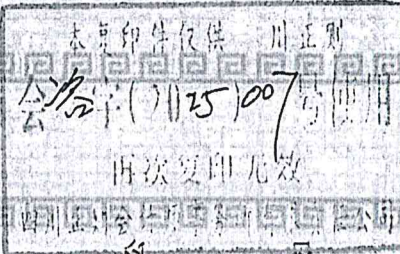 本复印件仅供 川正则
会咨字(2025)007号使用
再次复印无效
四川正则会计师事务所 责任公司